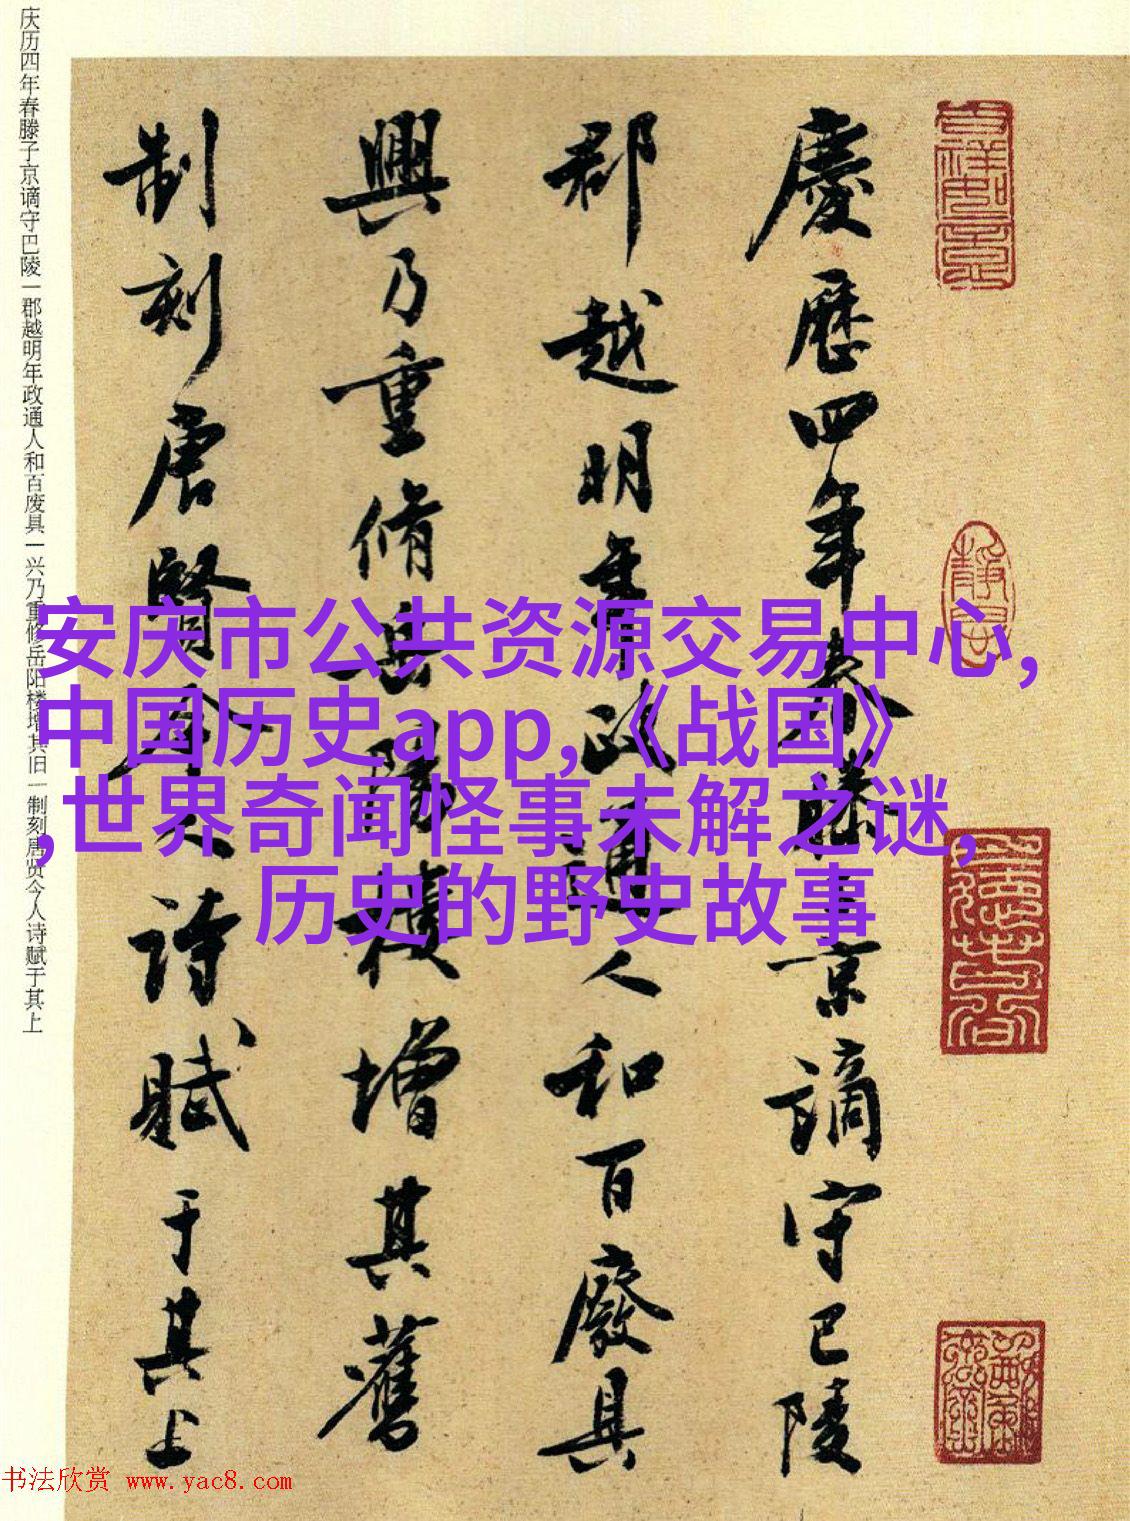 庆历四年春滕子京谪守巴陵一郡越明年政通人和百废具一兴乃重修岳阳楼增其旧一制刻唐贤今人诗赋于其上
慶歷四年春滕子京谪守巴陵
郡越明年政通人和百廢具
興乃重脩岳陽樓增其舊
制刻唐賢今人诗賦于其上
安庆市公共资源交易中心,
中国历史app,《战国》
,世界奇闻怪事未解之谜,
历史的野史故事
书法欣赏 www.yac8.com